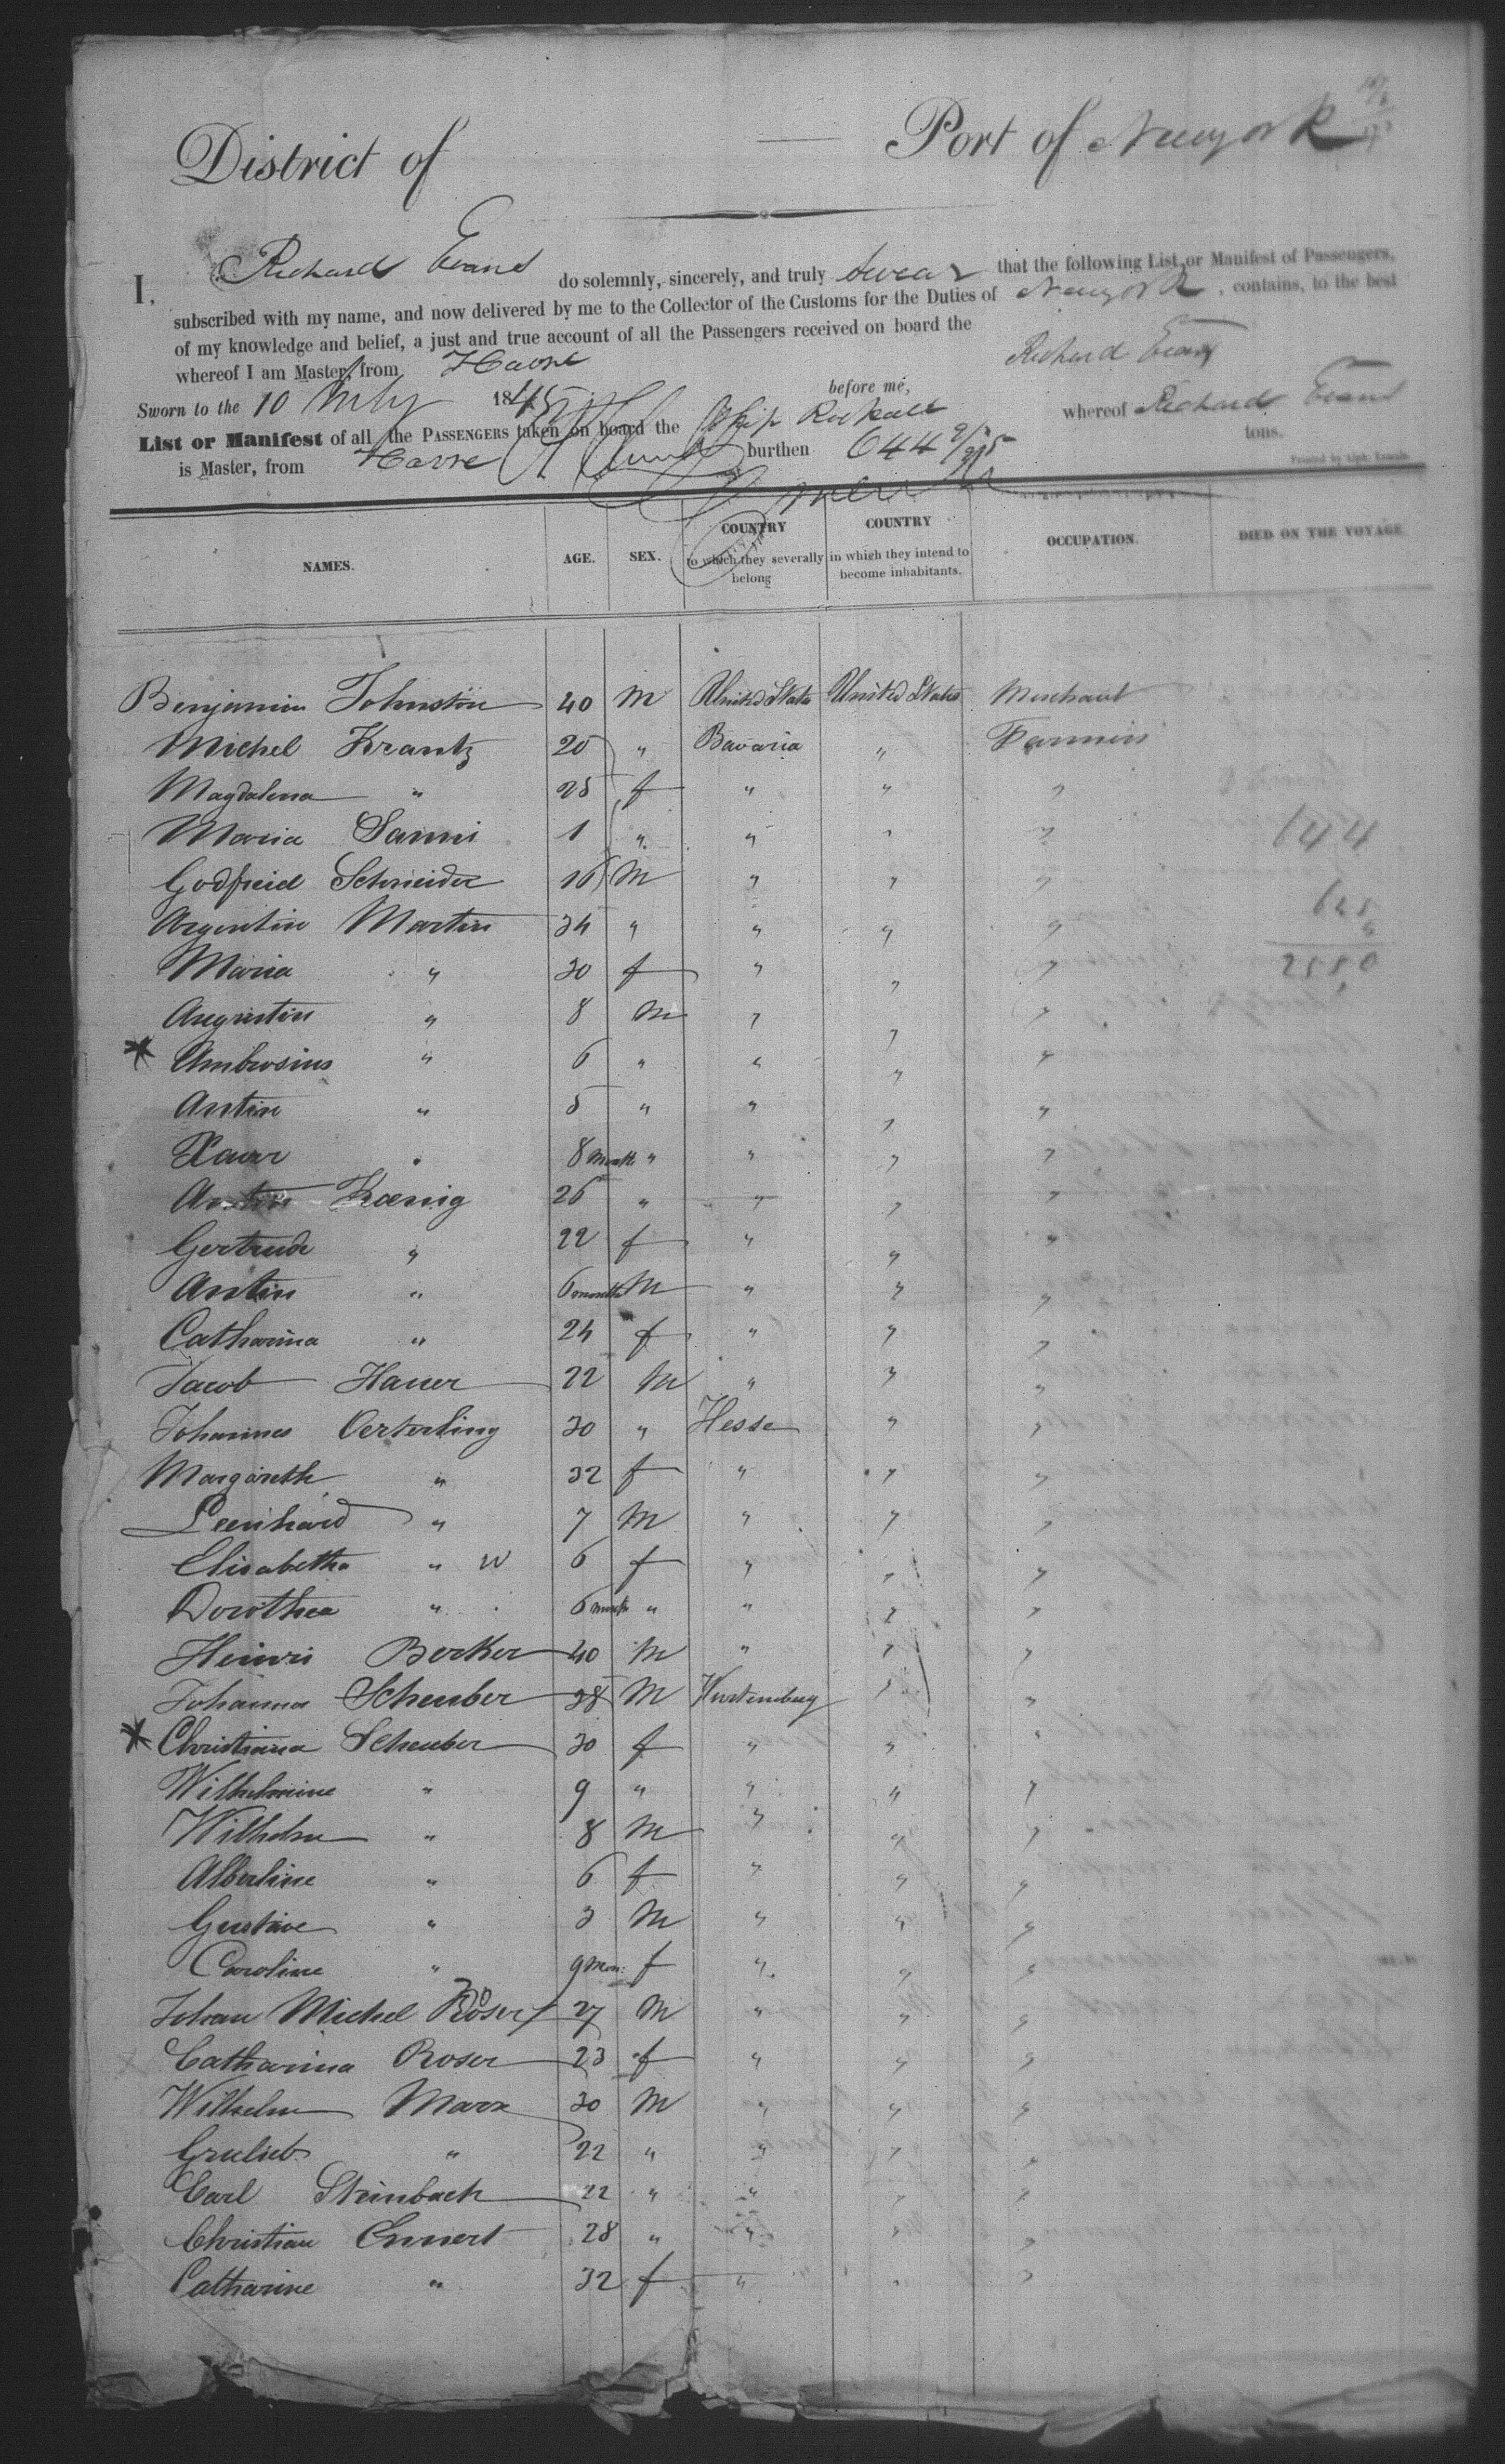 District of — Port of Newyork
I, Richard Evans do solemnly, sincerely, and truly swear that the following List or Manifest of Passengers,
subscribed with my name, and now delivered by me to the Collector of the Customs for the Duties of Newyork, contains, to the best
of my knowledge and belief, a just and true account of all the Passengers received on board the
whereof I am Master, from Havre Richard Evans
Sworn to the 10 July 1845 before me,
List or Manifest of all the PASSENGERS taken on board the Ship whereof Richard Evans
is Master, from Havre burthen 644 tons.
NAMES. AGE. SEX. COUNTRY to which they severally belong COUNTRY in which they intend to become inhabitants. OCCUPATION. DIED ON THE VOYAGE
Benjamin Johnston 40 M United States United States Merchant
Michel Krantz 20 " Bavaria " Farmers
Magdalena " 25 f " " "
Maria 1 " " " " 644
Godfreid Schneider 16 M " " "
Martin 34 " " " " 645
Maria " 30 f " " " 2580
Augustin " 8 M " " "
* Ambrosius " 6 " " " "
Antin " 5 " " " "
Xaver " 8 month " " " "
Antin Kœnig 26 " " " "
Gertrude " 22 f " " "
Antin " 6 months M " " "
Catharina " 24 f " " "
Jacob Hauer 22 M " " "
Johannes Oerterling 30 " Hesse " "
Margareth " 32 f " " "
Leenhard " 7 M " " "
Elisabetha " W 6 f " " "
Dorothea " 6 month " " " "
Heinri Becker 40 M " " "
Johannes Scheuber 38 M Wurtemburg " "
* Christiana Scheuber 30 f " " "
Wilhelmine " 9 " " " "
Wilhelm " 8 M " " "
Albertine " 6 f " " "
Gustave " 3 M " " "
Caroline " 9 mon: f " " "
Johan Michel Röser 27 M " " "
Catharina Roser 23 f " " "
Wilhelm Marx 30 M " " "
" 22 " " " "
Carl Steinbach 22 " " " "
Christian 28 " " " "
Catharine " 32 f " " "